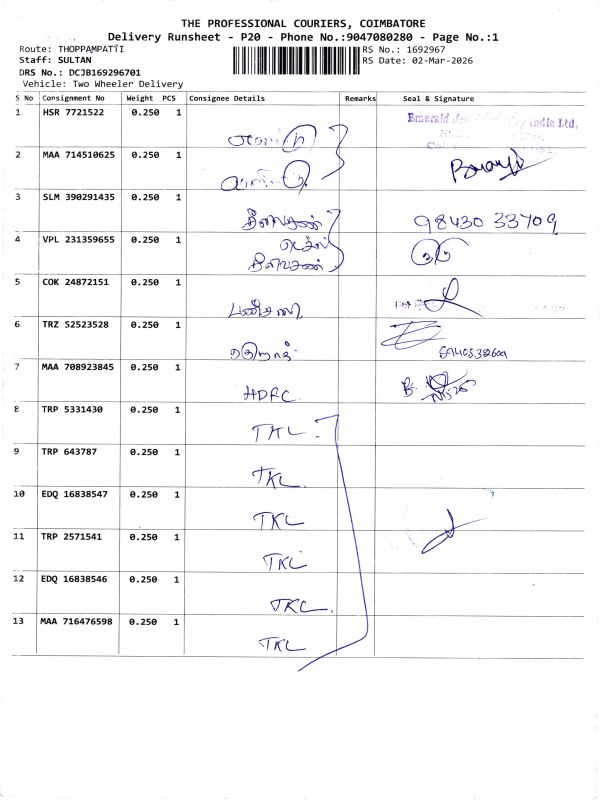 THE PROFESSIONAL COURIERS, COIMBATORE
Delivery Runsheet - P20 - Phone No.:9047080280 - Page No.:1
Route: THOPPAMPATTI
RS No.: 1692967
Staff: SULTAN
RS Date: 02-Mar-2026
DRS No.: DCJB169296701
Vehicle: Two Wheeler Delivery
S No Consignment No Weight PCS Consignee Details Remarks Seal & Signature
1 HSR 7721522 0.250 1
Emerald India Ltd,
2 MAA 714510625 0.250 1
3 SLM 390291435 0.250 1
98430 33709
4 VPL 231359655 0.250 1
5 COK 24872151 0.250 1
6 TRZ 52523528 0.250 1
7 MAA 708923845 0.250 1
HDFC
8 TRP 5331430 0.250 1
TKL
9 TRP 643787 0.250 1
TKL
10 EDQ 16838547 0.250 1
TKL
11 TRP 2571541 0.250 1
TKL
12 EDQ 16838546 0.250 1
TKL.
13 MAA 716476598 0.250 1
TKL